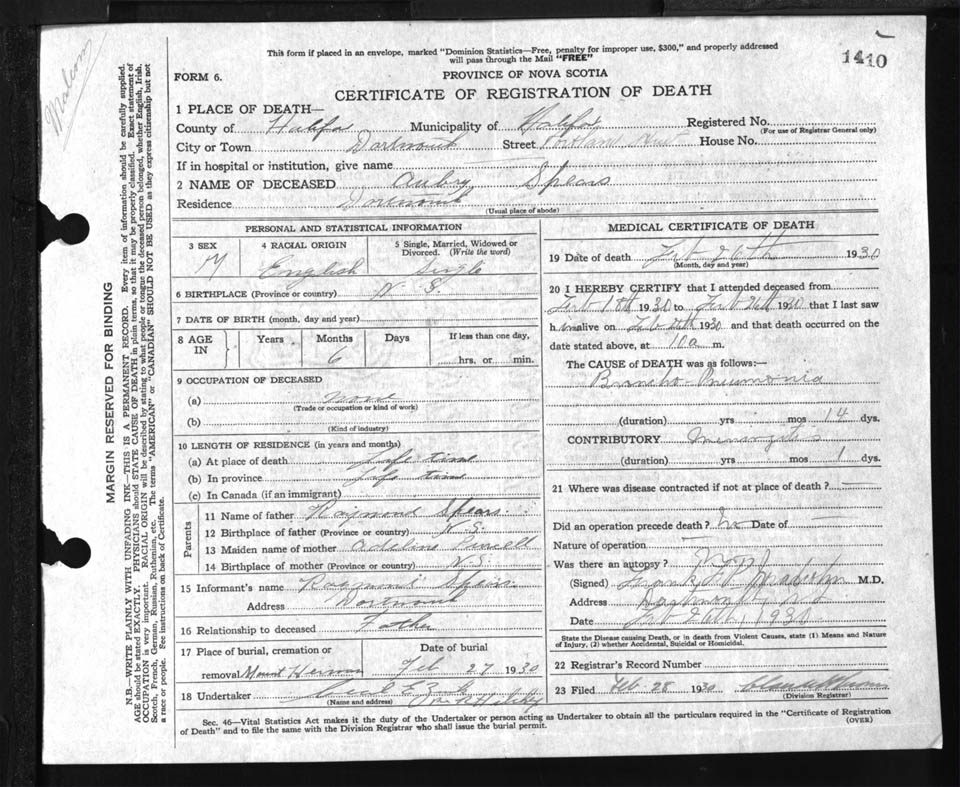 Malcom
This form if placed in an envelope, marked "Dominion Statistics—Free, penalty for improper use, $300," and properly addressed
will pass through the Mail "FREE"
1410
FORM 6.
PROVINCE OF NOVA SCOTIA
CERTIFICATE OF REGISTRATION OF DEATH
1 PLACE OF DEATH—
County of Halifax Municipality of Halifax Registered No.
(For use of Registrar General only)
City or Town Dartmouth Street Portland Street House No.
If in hospital or institution, give name
2 NAME OF DECEASED Aubry Spears
Residence Dartmouth
(Usual place of abode)
PERSONAL AND STATISTICAL INFORMATION
3 SEX 4 RACIAL ORIGIN 5 Single, Married, Widowed or
Divorced. (Write the word)
M English Single
6 BIRTHPLACE (Province or country) N. S.
7 DATE OF BIRTH (month, day and year)
8 AGE IN Years Months Days If less than one day,
6 hrs. or min.
9 OCCUPATION OF DECEASED
(a) none
(Trade or occupation or kind of work)
(b)
(Kind of industry)
10 LENGTH OF RESIDENCE (in years and months)
(a) At place of death Life time
(b) In province Life time
(c) In Canada (if an immigrant)
Parents
11 Name of father Raymond Spears
12 Birthplace of father (Province or country) N.S.
13 Maiden name of mother Adeline Purcell
14 Birthplace of mother (Province or country) N.S.
15 Informant's name Raymond Spears
Address Dartmouth
16 Relationship to deceased Father
17 Place of burial, cremation or Date of burial
removal Mount Hermon Feb 27 1930
18 Undertaker
(Name and address)
MEDICAL CERTIFICATE OF DEATH
19 Date of death Feb 26th 1930
(Month, day and year)
20 I HEREBY CERTIFY that I attended deceased from
Feb 18th 1930 to Feb 26th 1930 that I last saw
him alive on Feb 26th 1930 and that death occurred on the
date stated above, at 10 a m.
The CAUSE OF DEATH was as follows:—
Broncho-Pneumonia
(duration) yrs mos 14 dys.
CONTRIBUTORY Meningitis
(duration) yrs mos 1 dys.
21 Where was disease contracted if not at place of death? —
Did an operation precede death? No Date of —
Nature of operation —
Was there an autopsy? No
(Signed) Frank M.D.
Address Dartmouth N S
Date Feb 26th, 1930
State the Disease causing Death, or in death from Violent Causes, state (1) Means and Nature
of Injury, (2) whether Accidental, Suicidal or Homicidal.
22 Registrar's Record Number
23 Filed Feb 28 1930
(Division Registrar)
Sec. 46—Vital Statistics Act makes it the duty of the Undertaker or person acting as Undertaker to obtain all the particulars required in the "Certificate of Registration
of Death" and to file the same with the Division Registrar who shall issue the burial permit.
(OVER)
MARGIN RESERVED FOR BINDING
N.B.—WRITE PLAINLY WITH UNFADING INK—THIS IS A PERMANENT RECORD. Every item of information should be carefully supplied.
AGE should be stated EXACTLY. PHYSICIANS should STATE CAUSE OF DEATH in plain terms, so that it may be properly classified. Exact statement of
OCCUPATION is very important. RACIAL ORIGIN will be described by stating to what people or tongue the deceased person belonged, whether English, Irish,
Scotch, French, German, Russian, Ruthenian, etc. The terms "AMERICAN" or "CANADIAN" SHOULD NOT BE USED as they express citizenship but not
a race or people. See instructions on back of Certificate.